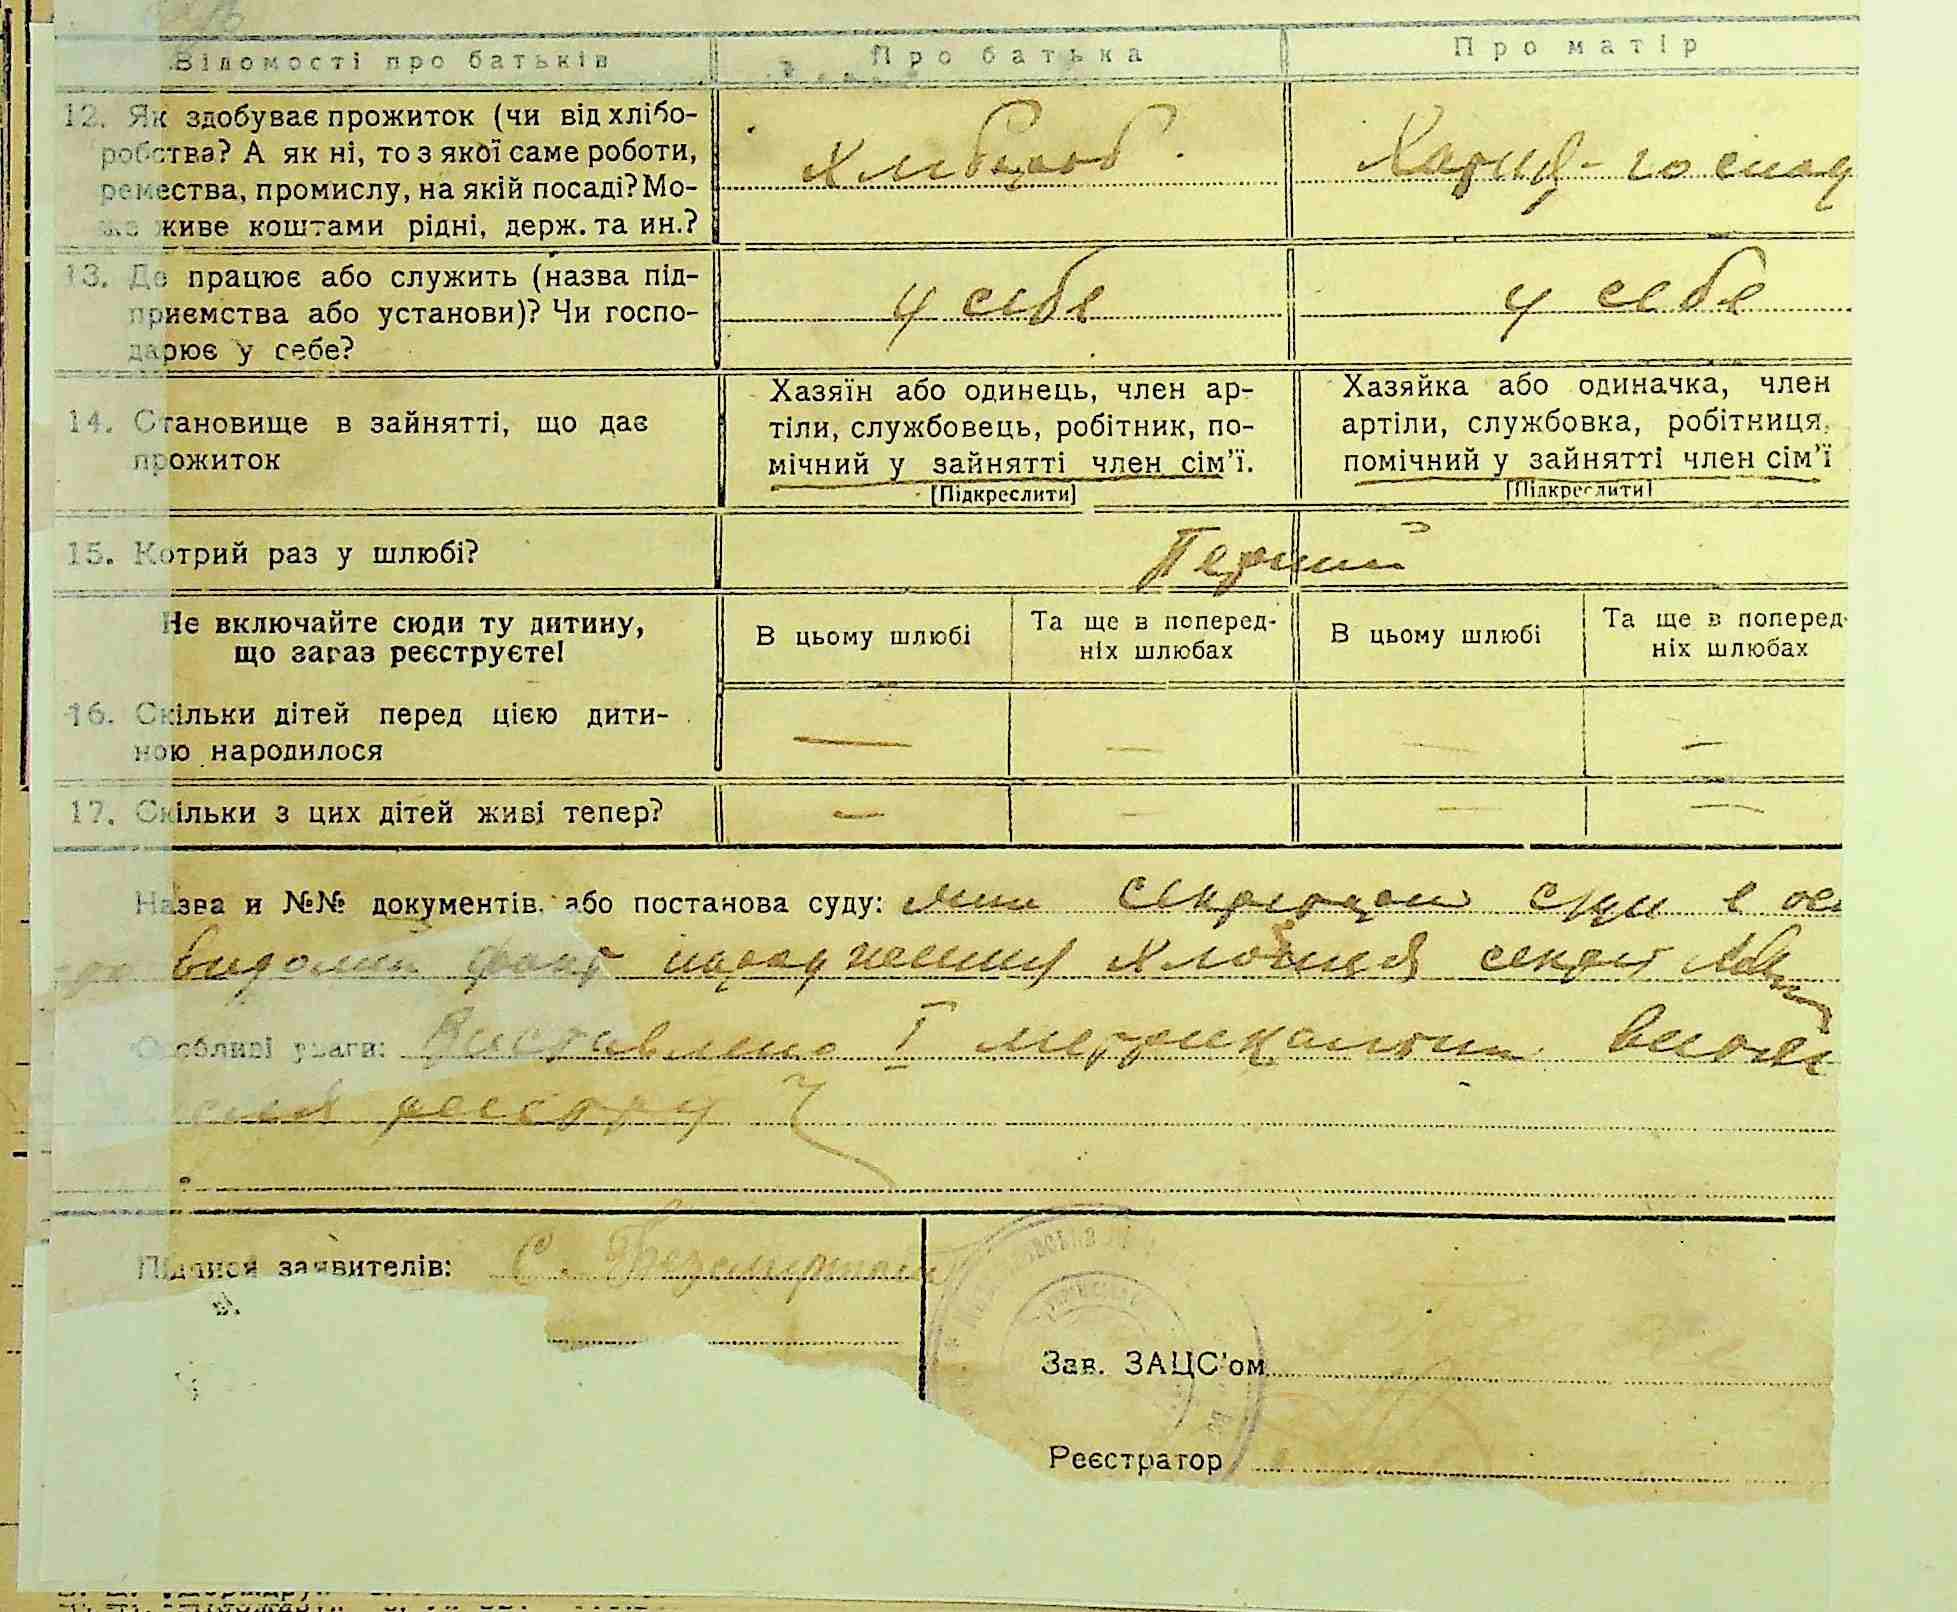 Відомості про батьків Про батька Про матір
12. Як здобуває прожиток (чи від хлібо-
робства? А як ні, то з якої саме роботи,
ремества, промислу, на якій посаді? Мо-
же живе коштами рідні, держ. та ин.?
Хлибороб. Хатня-господ
13. Де працює або служить (назва під-
приємства або установи)? Чи госпо-
дарює у себе?
у себе у себе
14. Становище в зайнятті, що дає
прожиток
Хазяїн або одинець, член ар-
тіли, службовець, робітник, по-
мічний у зайнятті член сім'ї.
[Підкреслити]
Хазяйка або одиначка, член
артіли, службовка, робітниця,
помічний у зайнятті член сім'ї
[Підкреслити]
15. Котрий раз у шлюбі? Перший
Не включайте сюди ту дитину,
що зараз реєструєте!
В цьому шлюбі Та ще в поперед-
ніх шлюбах
В цьому шлюбі Та ще в поперед-
ніх шлюбах
16. Скільки дітей перед цією дити-
ною народилося — — — —
17. Скільки з цих дітей живі тепер? — — — —
Назва и №№ документів, або постанова суду: мни секретарю с/ради е
видомий факт народження хлопця секрет
Особливі уваги: Виставлено I метрикальни
реєстру
Підписи заявителів: С.
Зав. ЗАЦС'ом
Реєстратор